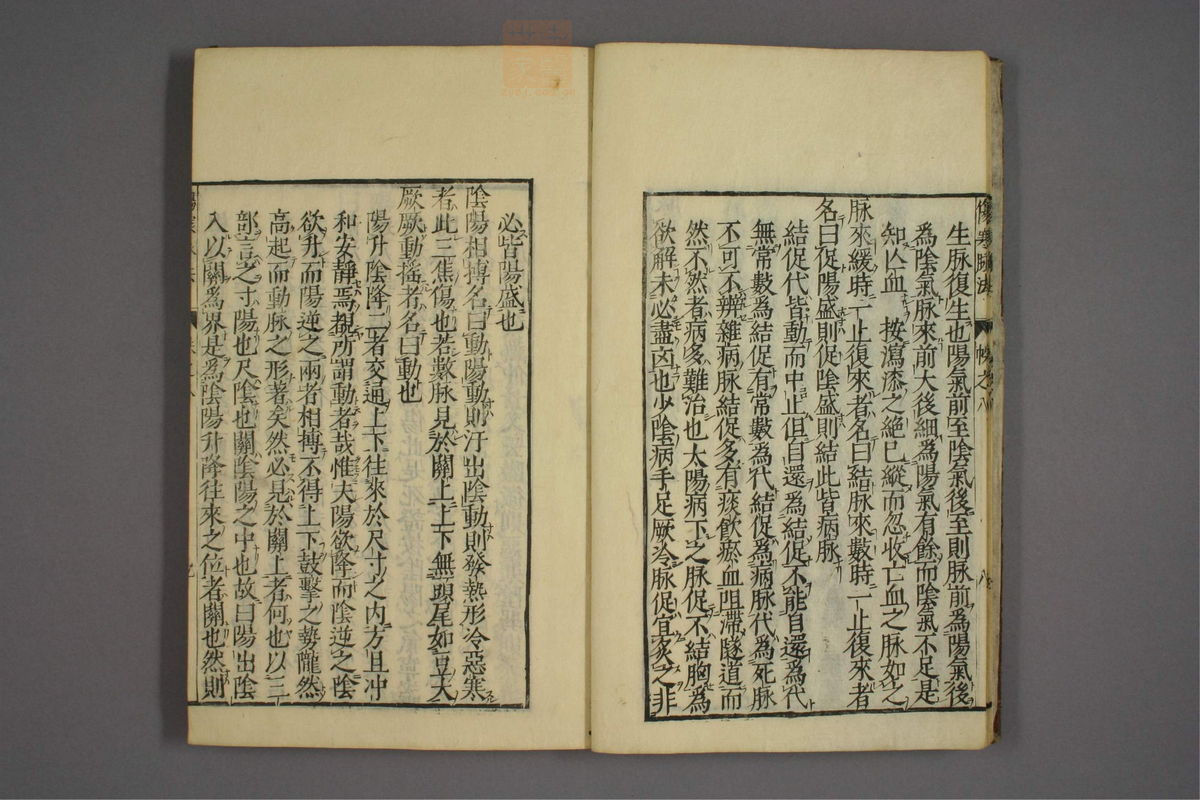 傷寒脉法 帙之八 八
生脉復生也陽氣前至陰氣後至則脉前爲陽氣後
爲陰氣脉來前大後細爲陽氣有餘而陰氣不足是
知亾血 按瀉漆之絶巳縱而忽收亡血之脉如之
脉來緩時一止復來者名曰結脉來數時一止復來者
名曰促陽盛則促陰盛則結此皆病脉
結促代皆動而中止但自還爲結促不能自還爲代
無常數爲結促有常數爲代結促爲病脉代爲死脉
不可不辨雜病脉結促多有痰飲瘀血阻滯隧道而
然不然者病多難治也太陽病下之脉促不結胸爲
欲解未必盡㐫也少陰病手足厥冷脉促宜灸之非
必皆陽盛也
陰陽相搏名曰動陽動則汗出陰動則發熱形冷惡寒
者此三焦傷也若數脉見於關上上下無頭尾如豆大
厥厥動搖者名曰動也
陽升陰降二者交通上下往來於尺寸之内方且冲
和安靜焉覩所謂動者哉惟夫陽欲降而陰逆之陰
欲升而陽逆之兩者相搏不得上下鼓擊之勢隴然
高起而動脉之形著矣然必見於關上者何也以三
部言之寸陽也尺陰也關陰陽之中也故曰陽出陰
入以關爲界是爲陰陽升降往來之位者關也然則